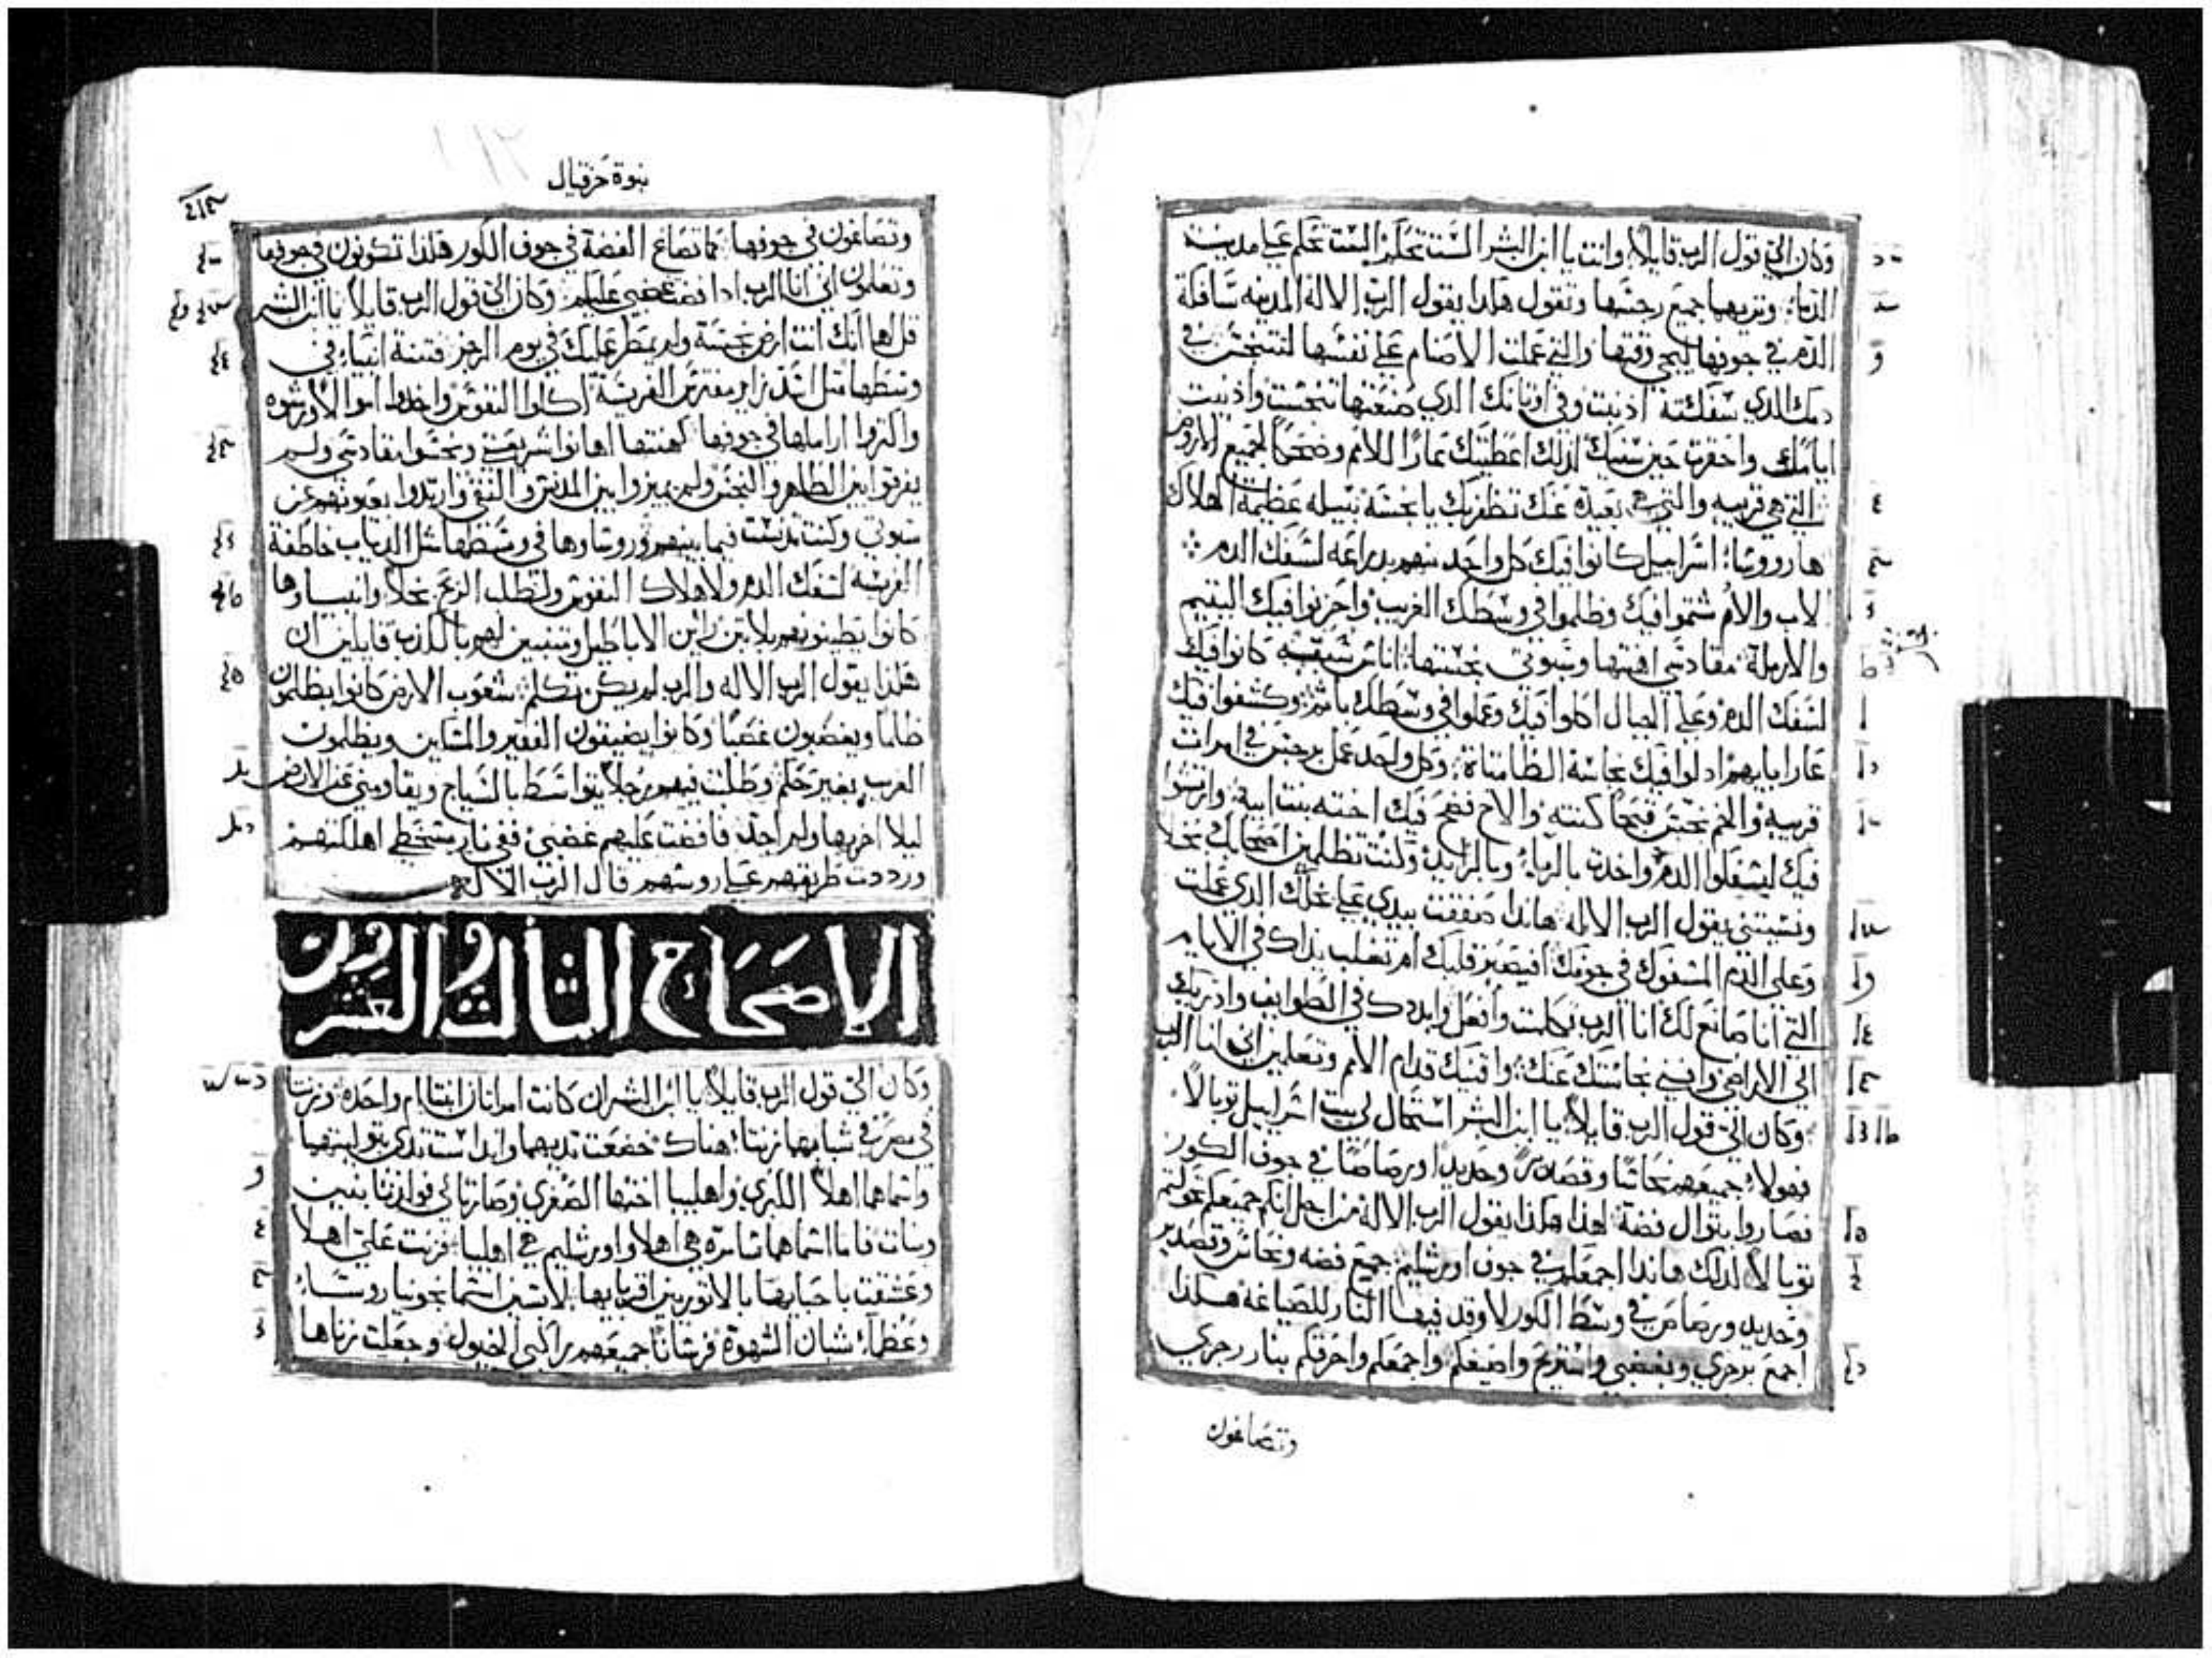 وكان اليّ قول الرب قايلاً وانت يا ابن البشر الست تحكم الست تحكم على مدينت
الدماء وتريها جميع رجسها وتقول هاذا يقول الرب الالاه المدينه سافكة
الدم في جوفها ليجي وقتها والتي عملت الاصنام على نفسها لتتنجس في
دمك الدي سفكته اذنبت وفي اوتانك الدي صنعتها تنجست وادنيت
ايامك واحضرت حين سنيك لذلك اعطيتك عارًا للامم وضحكًا لجميع الاروض
التي هي قريبه والتي هي بعيدة عنك تظفر بك يا نجسة نبيله عظيمة الهلاك
ها رووسا اسراييل كانوا فيك كل واحد منهم بدراعه لسفك الدم
لاب والام شتموا فيك وظلموا في وسطك الغريب واحزنوا فيك اليتيم
والارملة مقادسي اهنتها وسبوتي نجستها اناس كانوا فيك
لسفك الدم وعلى الجبال اكلوا فيك وعملوا في وسطك باثم وكشفوا فيك
عار ابايهم ادلوا فيك نجاسة الطامتاة وكل واحد عمل برجس في امرات
قريبه والحم نجس قبيحًا كنته والاخ فضح فيك اخته بنت ابيه وارتشوا
فيك ليسفكوا الدم واخدت بالرباء وبالزايد وكنت تظلمين اصحابك بخلا
ونسيتني يقول الرب الالاه هاندا صفقت بيدي على بخلك الدي عملت
وعلى الدم المسفوك في جوفك افيصبر قلبك ام تغلب يداك في الايام
التي انا صانع لك انا الرب تكلمت وافعل وابددك في الطوايف واذريك
الي الاراضي وافني نجاستك عنك واقنيك قدام الامم وتعلمين اني انا الرب
وكان اليّ قول الرب قايلاً يا ابن البشر استحال لي بيت اسراييل توبالاً
فهولاء جميعهم نحاسًا وقصديرً وحديدًا ورصاصًا في جوف الكور
فصاروا بتوال فضة لهذا هكذا يقول الرب الالاه من اجل انكم جميعكم تحولتم
توبالاً لذلك هاندا اجمعكم في جوف اورشليم جميع فضه ونحاس وقصدير
وحديد ورصاص في وسط الكور لاوقد فيها النار للصياغه هكذا
اجمع برجزي وبغضبي واستريح واضيفكم واجمعكم واحرقكم بنار رجزي
وتصاغون
نبوة حزقيال
وتصاغون في جوفها كما تصاع الفضة في جوف الكور هكذا تكونون في جوفها
وتعلمون اني انا الرب ادا افضت غضبي عليكم وكان اليّ قول الرب قايلاً يا ابن البشر
قل لها انك انت ارض نجسة ولم يمطر عليك في يوم الرجز فتنة انبياء في
وسطها مثل اسد زاير مفترس الفريسة اكلوا النفوس واخدوا اموالا ورشوه
واكتروا اراملها في جوفها كهنتها اهانوا شريعتي ونجسوا مقادسي ولم
يفرقوا بين الطاهر والنجس ولم يميزوا بين المدنس والنقي وارتدوا بعيونهم عن
سبوتي وكنت تدنست فيما بينهم وروساوها في وسطها مثل الدياب خاطفة
الفريسه لسفك الدم ولاهلاك النفوس ولتطلب الربح بخلاً وانبياوها
كانوا يطينونهم بلا تبن رايين الاباطيل ومتنبيين لهم بالكذب قايلين ان
هكذا يقول الرب الالاه والرب لم يكن تكلم شعوب الارض كانوا يظلمون
ظلمًا ويغصبون غصبًا وكانوا يضيقون الفقير والمسكين ويظلمون
الغريب بغير حكم وطلبت فيهم رجلاً يتواسط بالسياج ويقاومني عن الارض
ليلا اخربها ولم اجد فافضت عليهم غضبي ففي نار سخطي اهلكتهم
ورددت طريقهم على روسهم قال الرب الالاه
الاصحاح الثالث والعشرون
وكان اليّ قول الرب قايلاً يا ابن البشر ان كانت امراتان ابنتا ام واحده وزنتا
في مصر في شبابهما زنتا هناك خضعت تديهما واندا ست تدي بتوليتهما
واسماهما اهلا الكبرى واهليبا اختها الصغرى وصارتا لي فولدتا بنين
وبنات فاما اسماهما سامره هي اهلا واورشليم هي اهليبا فزنت علي اهلا
وعشقت باحبابها بالاتوريين اقربايها لابسين اسمانجونيا روساء
وعظماء شبان الشهوة فرسانًا جميعهم راكبي الخيول وجعلت زناها